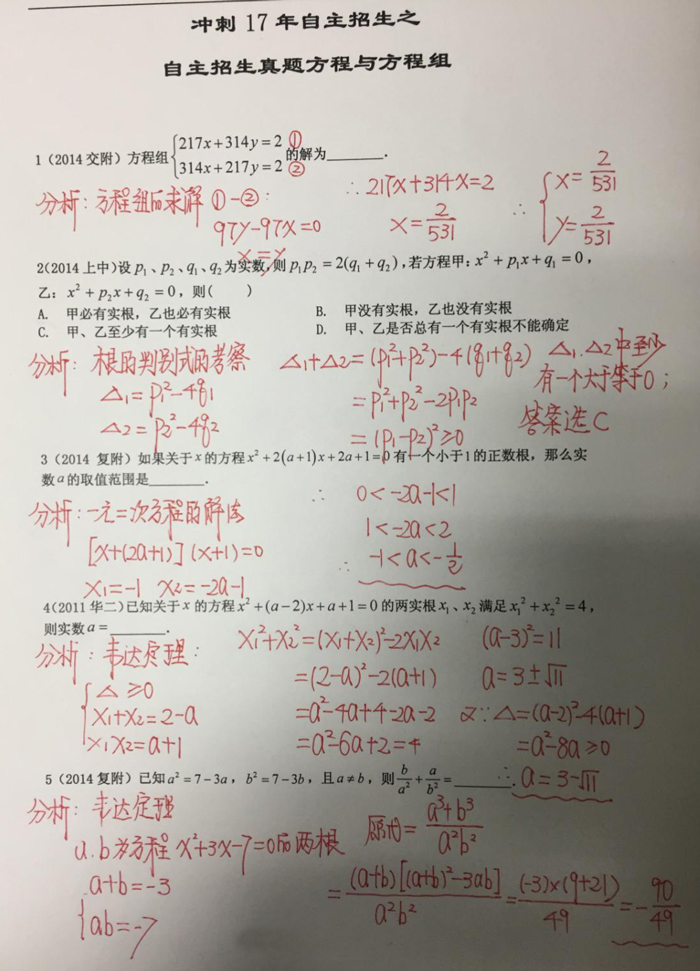 冲刺 17 年自主招生之
自主招生真题方程与方程组
1（2014交附）方程组{217x+314y=2 ① 314x+217y=2 ② 的解为______.
分析: 方程组的求解 ①-②:
97y-97x=0
x=y
∴217x+314x=2
x=2/531
∴{x=2/531 y=2/531
2(2014上中)设 p₁、p₂、q₁、q₂ 为实数,则 p₁p₂=2(q₁+q₂),若方程甲: x²+p₁x+q₁=0,
乙: x²+p₂x+q₂=0,则( )
A. 甲必有实根，乙也必有实根 B. 甲没有实根，乙也没有实根
C. 甲、乙至少有一个有实根 D. 甲、乙是否总有一个有实根不能确定
分析: 根的判别式的考察
△1=p1²-4q1
△2=p2²-4q2
△1+△2=(p1²+p2²)-4(q1+q2)
=p1²+p2²-2p1p2
=(p1-p2)²≥0
△1.△2中至少
有一个大于等于0;
答案选C
3（2014 复附）如果关于 x 的方程 x²+2(a+1)x+2a+1=0 有一个小于1的正数根，那么实
数 a 的取值范围是______.
分析: 一元二次方程的解法
[x+(2a+1)](x+1)=0
x1=-1 x2=-2a-1
∴ 0<-2a-1<1
1<-2a<2
∴ -1<a<-1/2
4(2011华二)已知关于 x 的方程 x²+(a-2)x+a+1=0 的两实根 x₁、x₂ 满足 x₁²+x₂²=4,
则实数 a=______.
分析: 韦达定理:
{△≥0
x1+x2=2-a
x1x2=a+1
x1²+x2²=(x1+x2)²-2x1x2
=(2-a)²-2(a+1)
=a²-4a+4-2a-2
=a²-6a+2=4
(a-3)²=11
a=3±√11
又∵△=(a-2)²-4(a+1)
=a²-8a≥0
∴a=3-√11
5（2014复附）已知 a²=7-3a, b²=7-3b, 且 a≠b, 则 b/a²+a/b²=______.
分析: 韦达定理
a.b为方程 x²+3x-7=0的两根
{a+b=-3
ab=-7
原式=(a³+b³)/(a²b²)
=(a+b)[(a+b)²-3ab]/(a²b²)=(-3)×(9+21)/49=-90/49